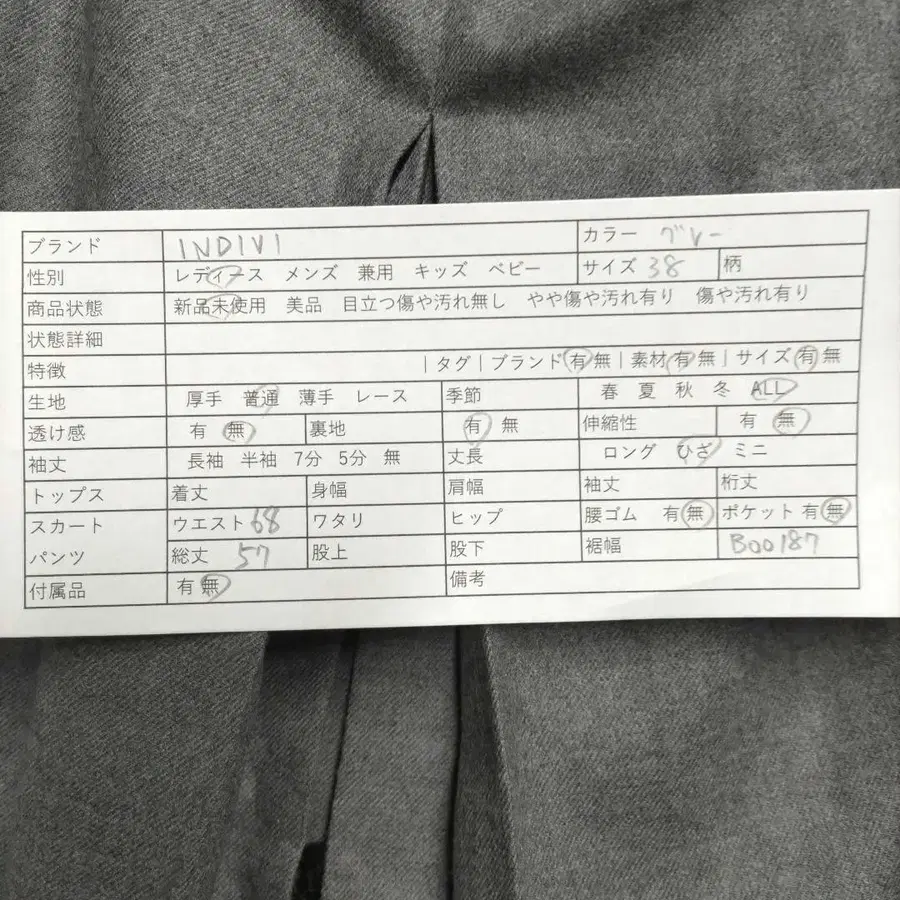 ブランド INDIVI カラー グレー
性別 レディース メンズ 兼用 キッズ ベビー サイズ 38 柄
商品状態 新品未使用 美品 目立つ傷や汚れ無し やや傷や汚れ有り 傷や汚れ有り
状態詳細
特徴 |タグ|ブランド有無|素材有無|サイズ有無
生地 厚手 普通 薄手 レース 季節 春 夏 秋 冬 ALL
透け感 有 無 裏地 有 無 伸縮性 有 無
袖丈 長袖 半袖 7分 5分 無 丈長 ロング ひざ ミニ
トップス 着丈 身幅 肩幅 袖丈 裄丈
スカート ウエスト 68 ワタリ ヒップ 腰ゴム 有 無 ポケット 有 無
パンツ 総丈 57 股上 股下 裾幅 B00187
付属品 有 無 備考